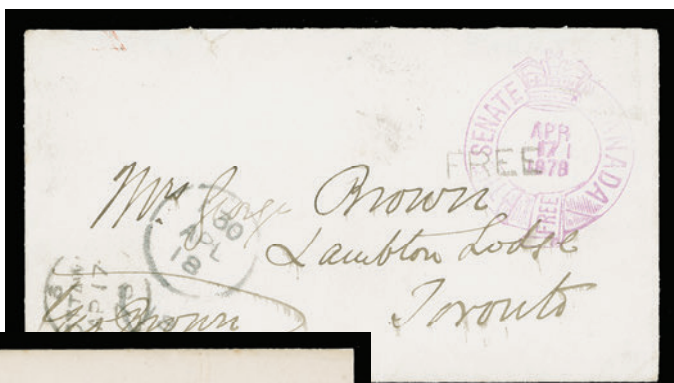 SENATE CANADA
APR
17 1
1878
FREE
FREE
Mrs George Brown
30
AP
18
Lambton Lodge
Toronto
AP 17
Geo Brown